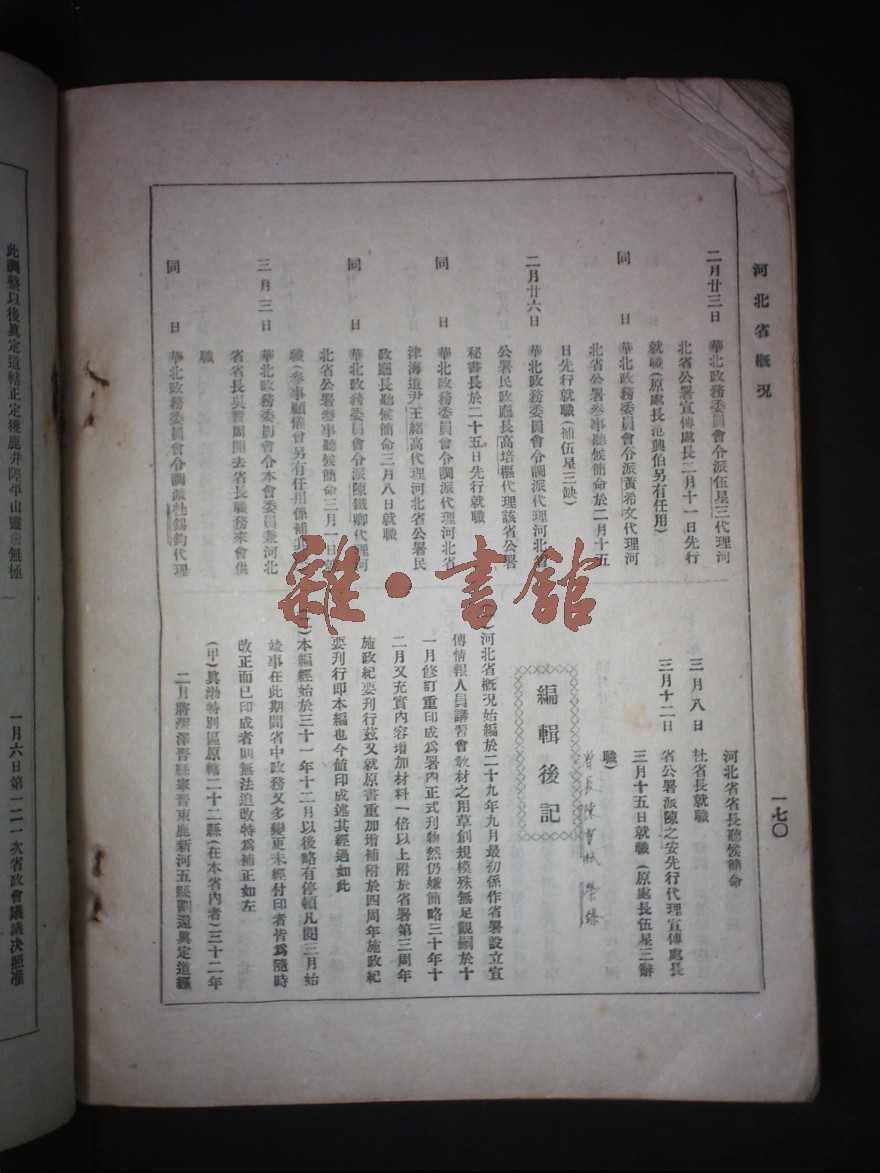 河北省概况
一七〇
二月廿三日 華北政務委員會令派伍星三代理河
北省公署宣傳處長二月十一日先行
就職(原處長范興伯另有任用)
同日 華北政務委員會令派黃希文代理河
北省公署參事聽候簡命於二月十五
日先行就職(補伍星三缺)
二月廿六日 華北政務委員會令調派代理河北省
公署民政廳長高培樞代理該省公署
秘書長於二十五日先行就職
同日 華北政務委員會令調派代理河北省
津海道尹王緒高代理河北省公署民
政廳長聽候簡命三月八日就職
同日 華北政務委員會令派陳鐵卿代理河
北省公署參事聽候簡命三月一日就
職(參事顧儀曾另有任用係補
三月三日 華北政務委員會令本會委員兼河北
省省長吳贊周開去省長職務來會供
職
同日 華北政務委員會令調派杜錫鈞代理
河北省省長聽候簡命
三月八日 杜省長就職
三月十二日 省公署派陳之安先行代理宣傳處長
三月十五日就職(原處長伍星三辭
職)
編輯後記
河北省概况始編於二十九年九月最初係作省署設立宣
傳情報人員講習會教材之用草創規模殊無足觀嗣於十
一月修訂重印成爲署內正式刊物然仍嫌簡略三十年十
二月又充實內容增加材料一倍以上附於省署第三周年
施政紀要刊行茲又就原書重加增補附於四周年施政紀
要刊行即本編也今値印成述其經過如此
本編經始於三十一年十二月以後略有停頓凡閱三月始
竣事在此期間省中政務又多變更未經付印者皆爲隨時
改正而已印成者則無法追改特爲補正如左
(甲)眞渤特別區原轄二十二縣(在本省內者)三十二年
二月將深澤晉縣寧晉束鹿新河五縣劃還眞定道經
此調整以後眞定道轄正定獲鹿井陘平山靈壽無極
一月六日第一二一次省政會議議决照准
雜·書館